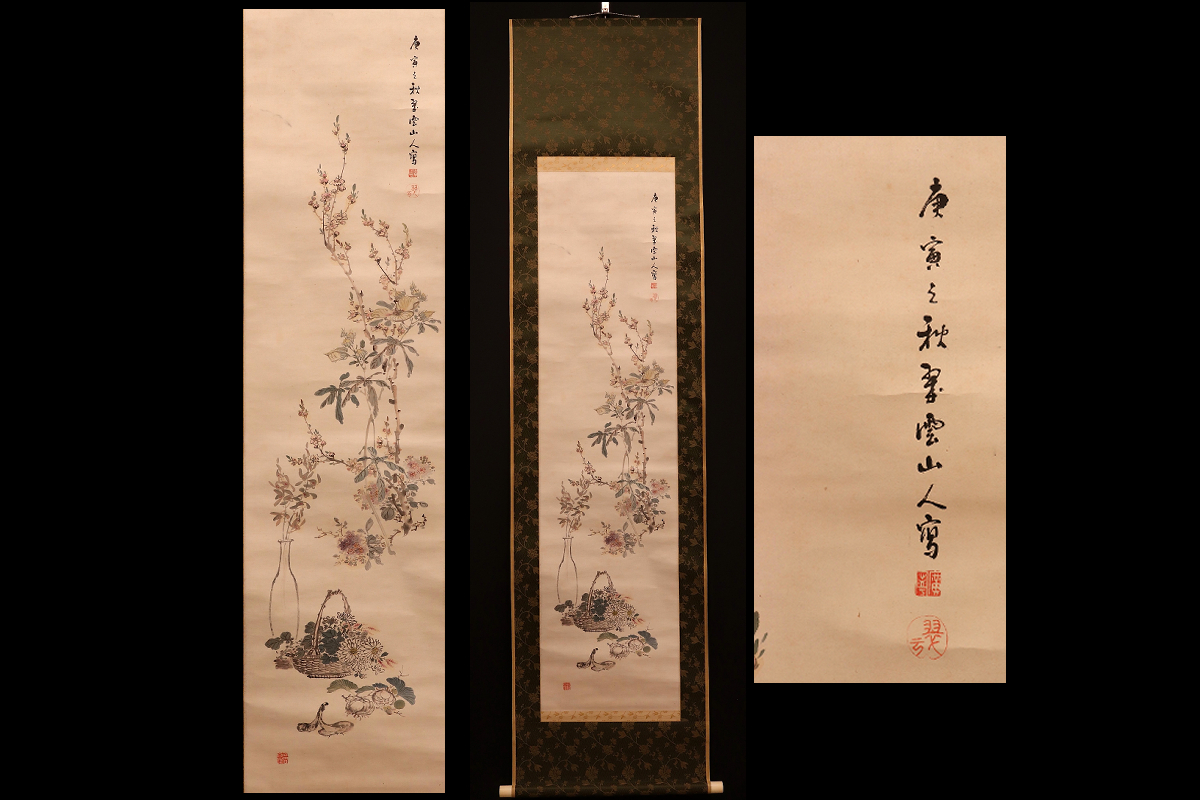 庚寅之秋翠雲山人寫
庚寅之秋翠雲山人寫
庚寅之秋翠雲山人寫